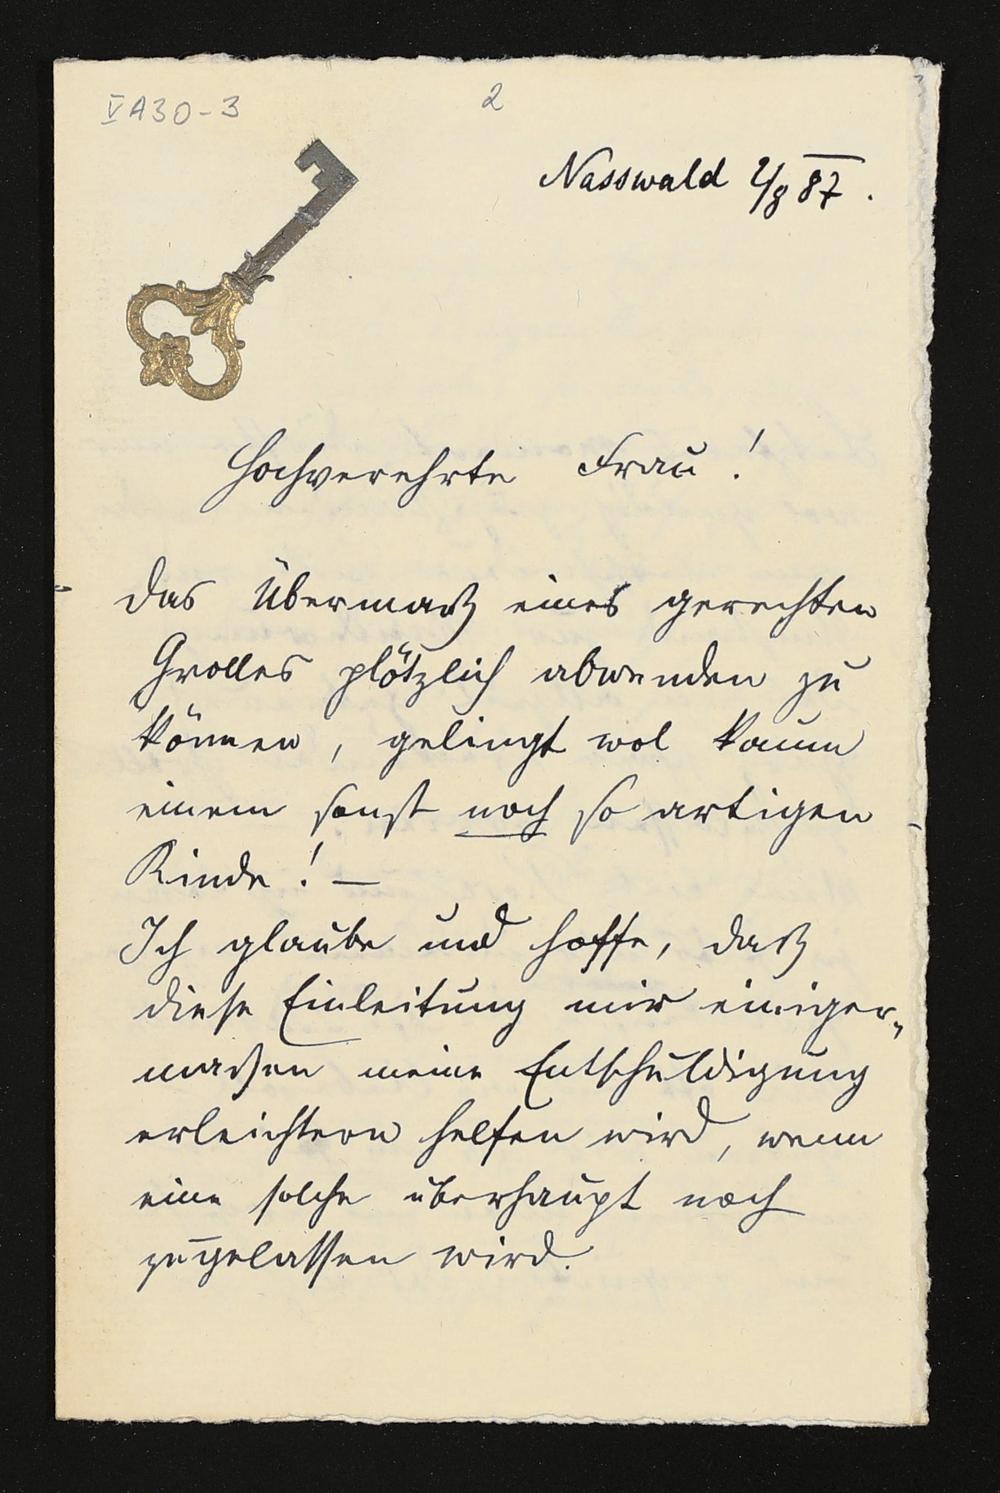 V A30-3
2
Nasswald 2/8 87.
Hochverehrte Frau!
Das Übermaß eines gerechten
Grolles plötzlich abwenden zu
können, gelingt wol kaum
einem sonst noch so artigen
Kinde! —
Ich glaube und hoffe, daß
diese Einleitung mir einiger„
maßen meine Entschuldigung
erleichtern helfen wird, wenn
eine solche überhaupt noch
zugelassen wird.